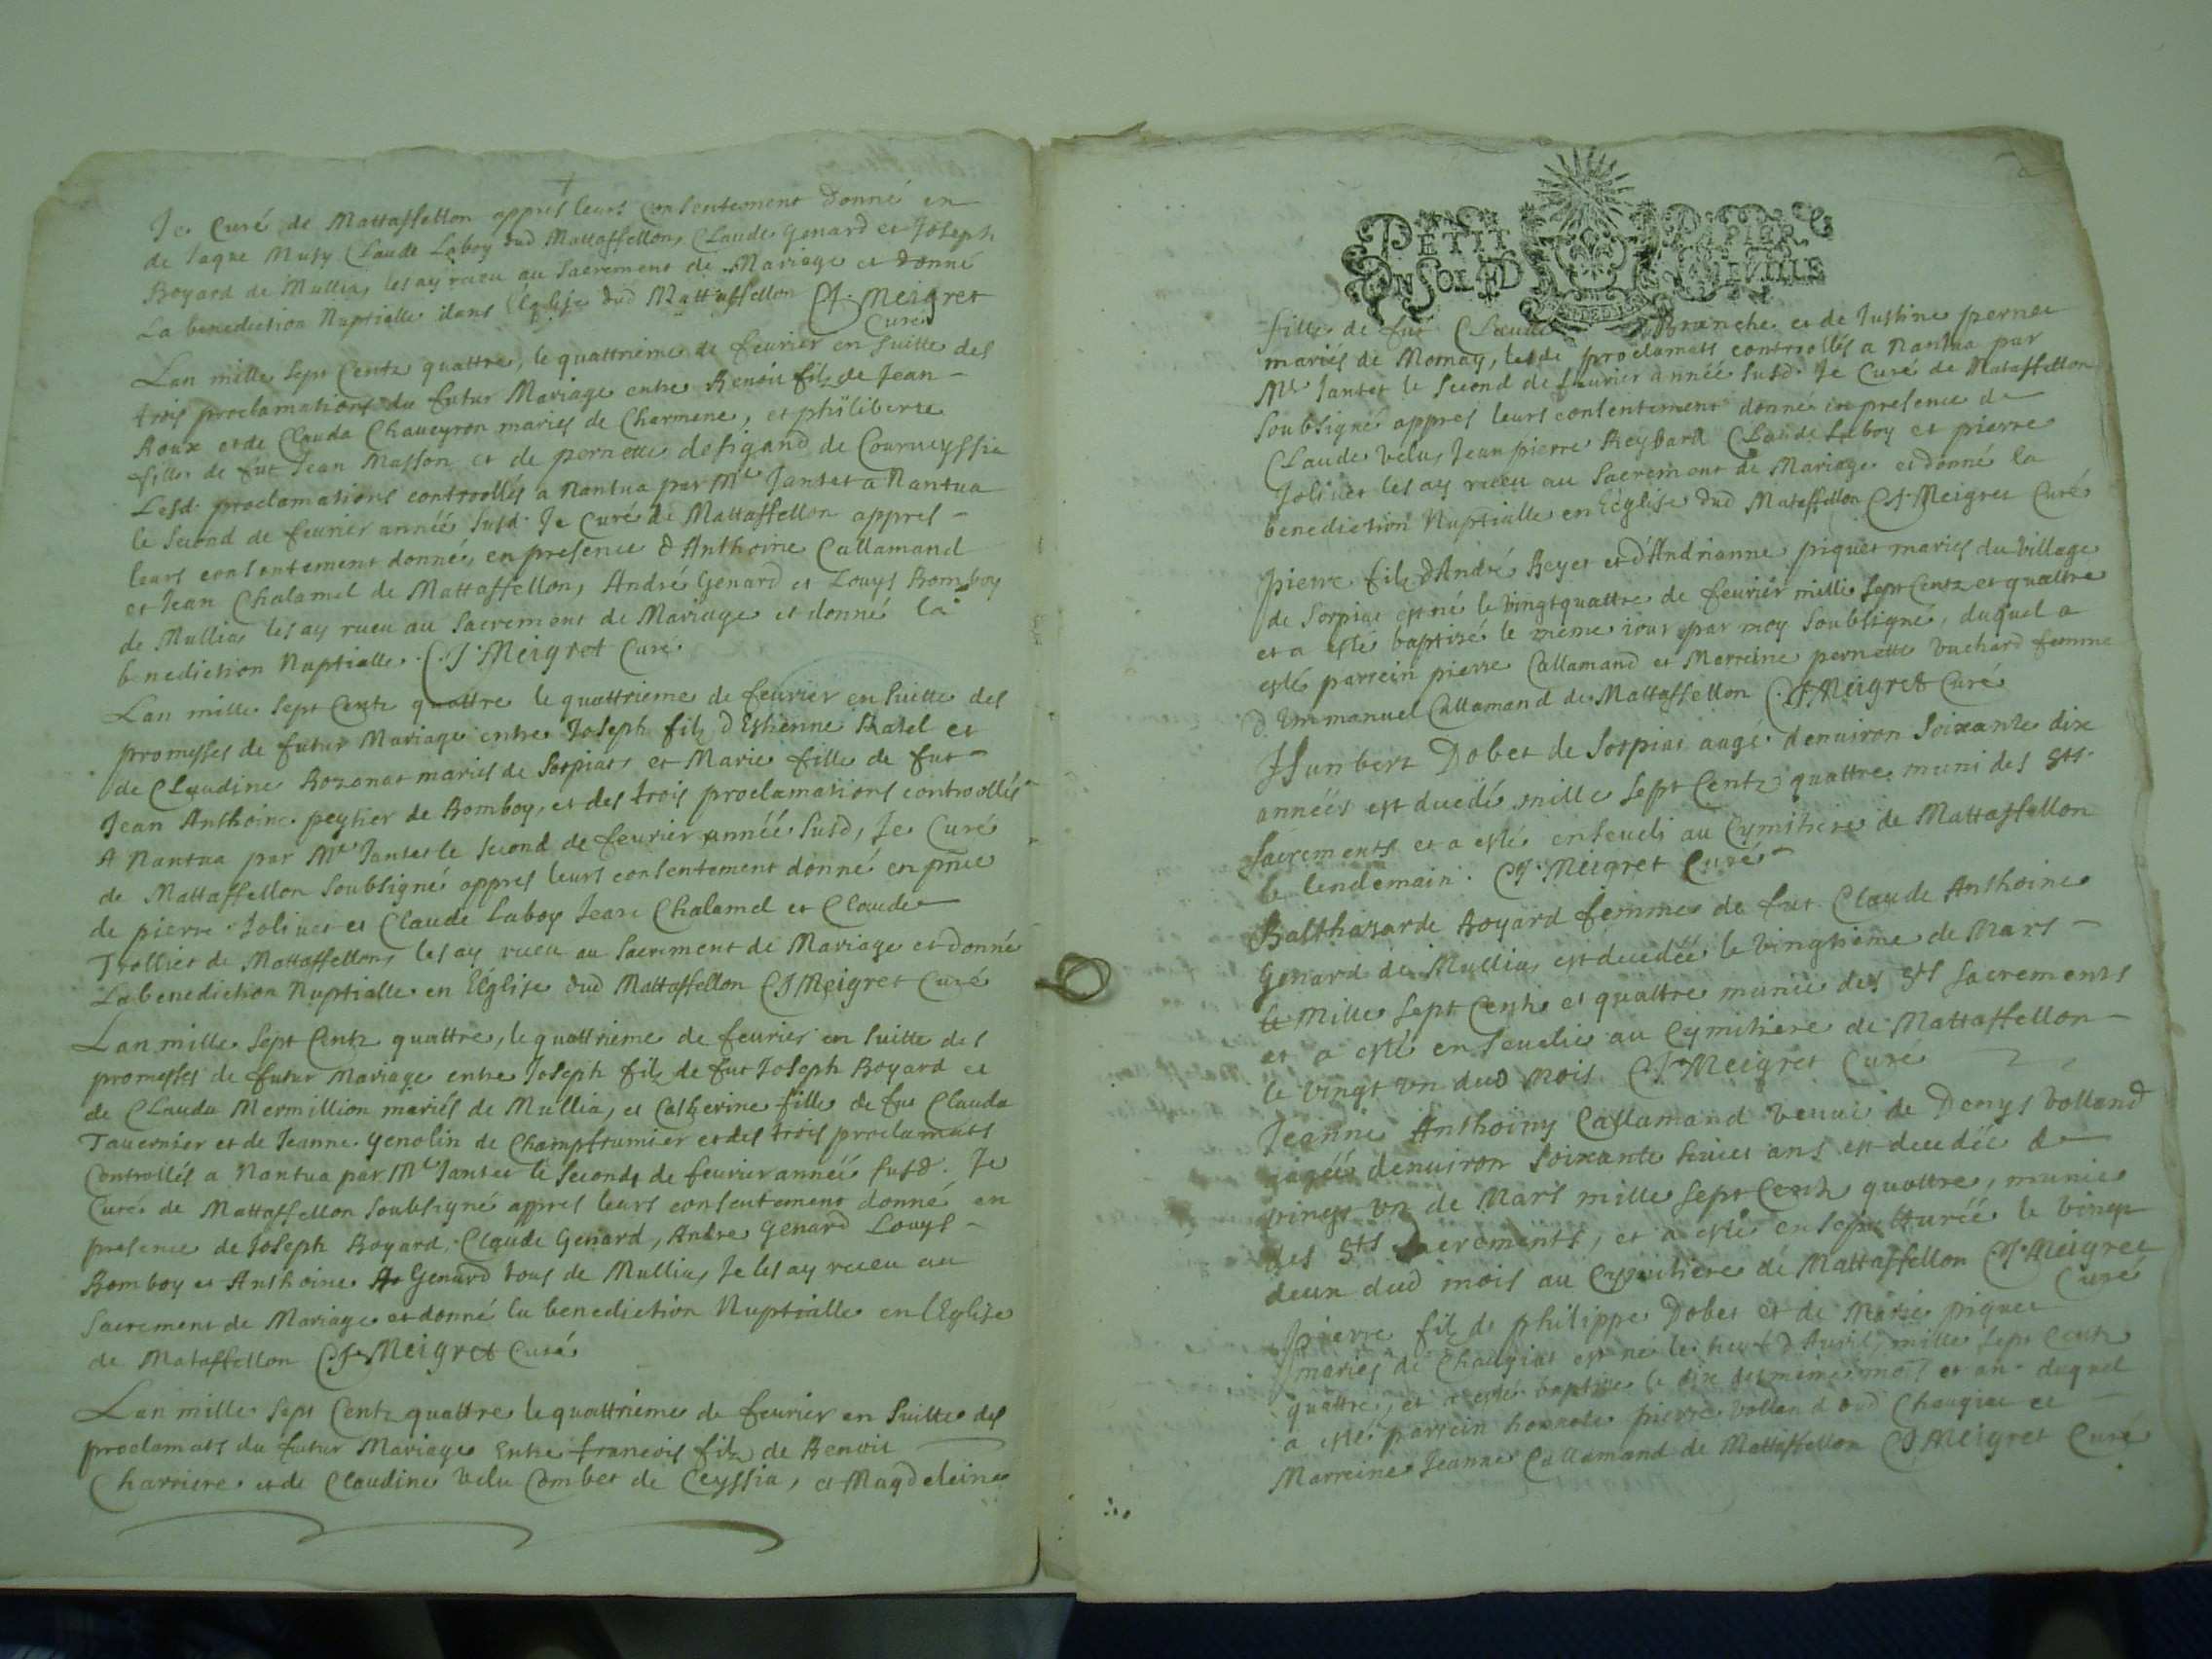 Je Curé de Mattaffellon appres leurs consentement donné en
de Jaque Musy Claude Laboy dud Mattaffellon, Claude Genard et Joseph
Boyard de Mullia, les ay receu au Sacrement de Mariage et donné
La benediction Nuptialle dans l'église dud Mattaffellon C.J. Meigret
Curé
Lan mille Sept Centz quattre, le quattrieme de feurier en Suitte des
trois proclamations du futur Mariage entre Benoit filz de Jean
Roux et de Clauda Chaueyron mariés de Charmene, et philiberte
fille de fut Jean Masson et de pernette desigand de Courueyssia
Lesd. proclamations controollés a Nantua par Me Jantet a Nantua
le Second de feurier année Susd. Je Curé de Mattaffellon appres
leurs consentement donné, en presence d'Anthoine Callamand
et Jean Chalamel de Mattaffellon, André Genard et Louys Bomboy
de Mullia les ay receu au Sacrement de Mariage et donné la
benediction Nuptialle. C.J. Meigret Curé
Lan mille Sept Centz quattre le quattrieme de feurier en Suitte des
promesses de futur Mariage entre Joseph filz d'Esthienne Ratel et
de Claudine Bozonat mariés de Sorpiat, et Marie fille de fut
Jean Anthoine peytier de Bomboy, et des trois proclamations controollés
A Nantua par Me Jantet le Second de feurier année Susd, Je Curé
de Mattaffellon Soubsigné appres leurs consentement donné en pnce
de pierre Joliuet et Claude Laboy Jean Chalamel et Claude
Trolliet de Mattaffellon, les ay receu au Sacrement de Mariage et donné
La benediction Nuptialle en l'église dud Mattaffellon C.J. Meigret Curé
Lan mille Sept Centz quattre, le quattrieme de feurier en Suitte des
promesses de futur Mariage entre Joseph filz de fut Joseph Boyard et
de Clauda Mermillion mariés de Mullia, et Catherine fille de fut Claude
Tauernier et de Jeanne Genolin de Champfrumier et des trois proclamats
Controllés a Nantua par Me Jantet le Second de feurier année Susd. Je
Curé de Mattaffellon Soubsigné appres leurs consentement donné en
presence de Joseph Boyard, Claude Genard, Andre Genard Louys
Bomboy et Anthoine Genard tous de Mullia, Je les ay receu au
Sacrement de Mariage et donné la benediction Nuptialle en l'Eglise
de Mataffellon C.J. Meigret Curé
Lan mille Sept Centz quattre le quattrieme de feurier en Suitte des
proclamats du futur Mariage Entre francois filz de Benoit
Charriere et de Claudine Velu Combet de Ceyssia, et Magdeleine
PETIT PAPIER
UN SOL
fille de fut Claude Branche et de Justine pernet
mariés de Mornay, lesd proclamats controollés a Nantua par
Me Jantet le Second de feurier année Susd. Je Curé de Mataffellon
Soubsigné appres leurs consentement donné en presence de
Claude Velu, Jean pierre Reybard Claude Laboy et pierre
Joliuet les ay receu au Sacrement de Mariage et donné la
benediction Nuptialle en l'église dud Mataffellon C.J. Meigret Curé
Pierre filz d'André Reyet et d'Andrianne piquet mariés du Village
de Sorpiat est né le Vingtquattre de feurier mille Sept Centz et quattre
et a esté baptizé le méme iour par moy Soubsigné, duquel a
esté parrein pierre Callamand et Marreine pernette Vuchard femme
d'Immanuel Callamand de Mattaffellon C.J. Meigret Curé
Humbert Dobet de Sorpiat augé denuiron Soixante dix
années est decedé mille Sept Centz quattre muni des Sts
Sacrements et a esté enseueli au Cymithiere de Mattaffellon
le lendemain. C.J. Meigret Curé
Balthazarde Boyard femme de fut Claude Anthoine
Genard de Mullia, est decedée le Vingtieme de Mars
le Mille Sept Centz et quattre munie des Sts Sacrements
et a esté enseuelie au Cymithiere de Mattaffellon
le Vingt Vn dud Mois C.J. Meigret Curé
Jeanne Anthoiny Callamand Veuue de Denys Volland
agée denuiron Soixante Seize ans est decedée le
Vingt Vn de Mars mille Sept Centz quattre, munie
des Sts Sacrements, et a esté ensepulturée le Vingt
deux dud mois au Cymithiere de Mattaffellon C.J. Meigret
Curé
Pierre filz de philippe Dobet et de Marie piquet
mariés de Chaugiat est né le huit d'Auril mille Sept Centz
quattre, et a esté baptizé le dix des méme mois et an duquel
a esté parrein honnete pierre Volland dud Chaugiat et
Marreine Jeanne Callamand de Mattaffellon C.J. Meigret Curé